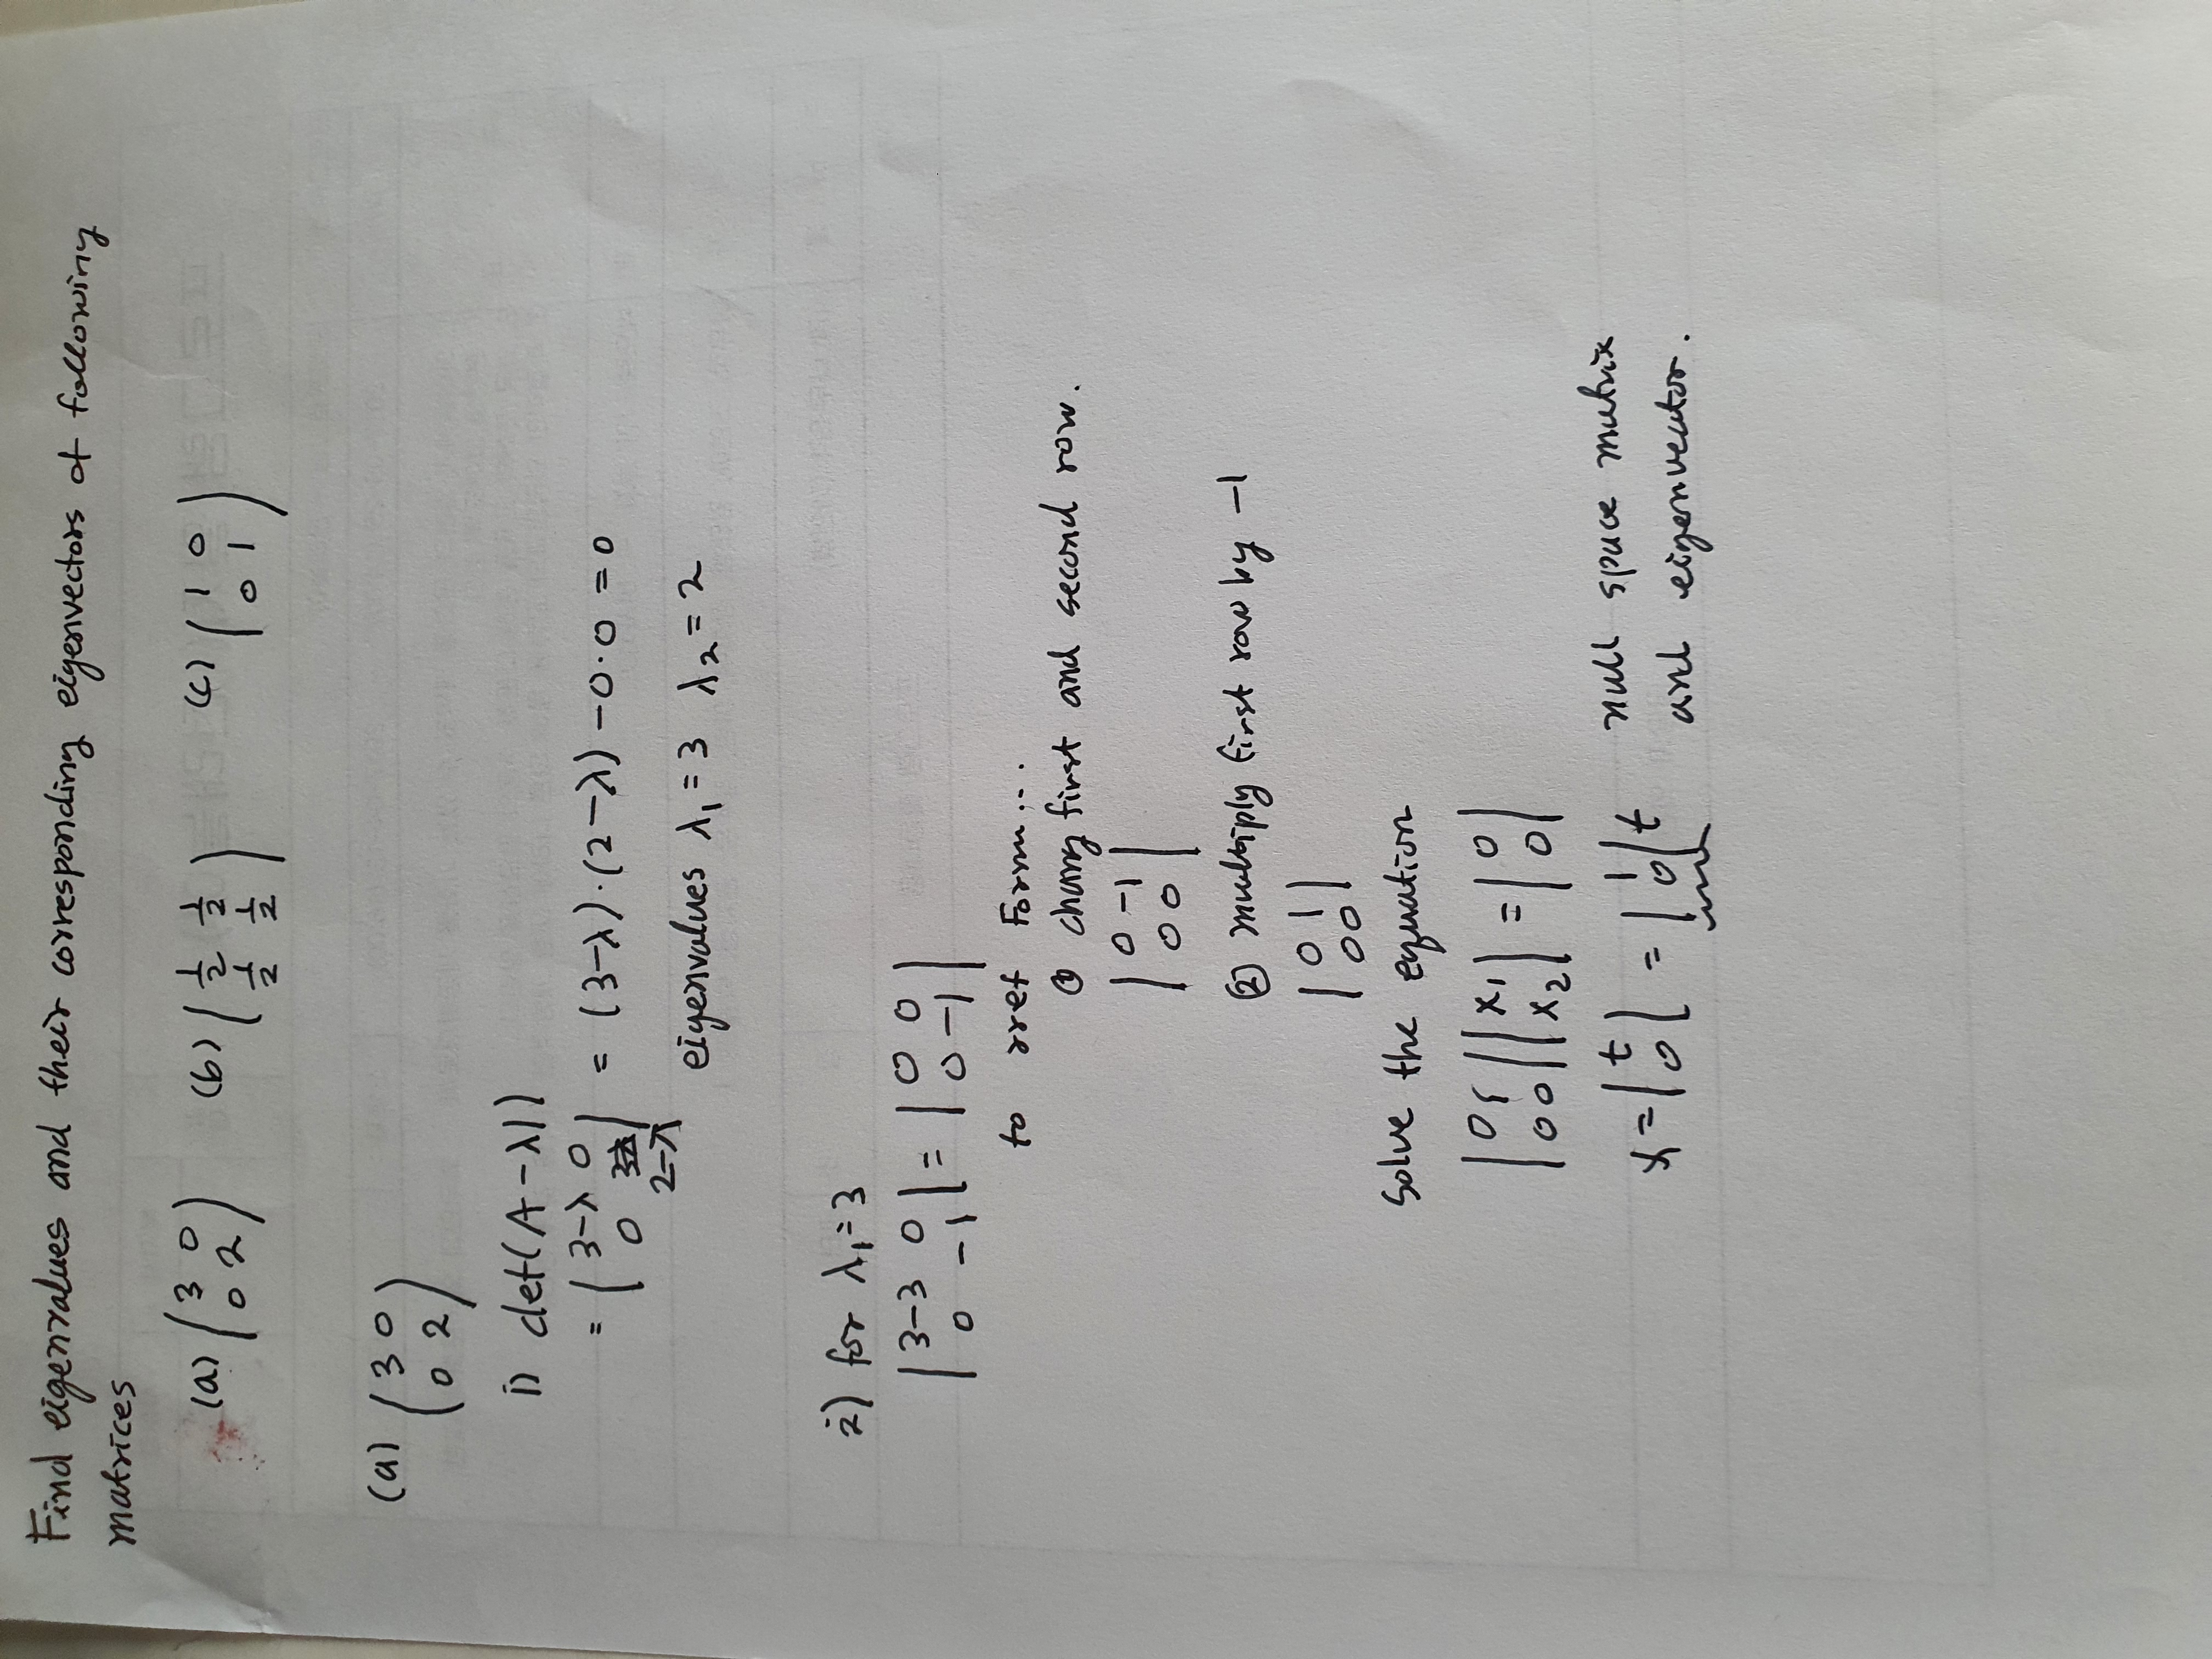 Find eigenvalues and their corresponding eigenvectors of following
matrices
(a) (3 0 (b) (1/2 1/2 (c) (1 0
0 2) 1/2 1/2) 0 1)
(a) (3 0
0 2)
i) det(A-λI)
= |3-λ 0 = (3-λ)·(2-λ)-0·0 = 0
0 2-λ|
eigenvalues λ₁=3 λ₂=2
2) for λ₁=3
|3-3 0 = |0 0
0 -1| 0 -1|
to rref Form...
① chang first and second row.
|0 -1
0 0|
② multiply first row by -1
|0 1
0 0|
Solve the equation
|0 1 |x₁ = |0
0 0| x₂| 0|
x = |t = |1 t null space matrix
0| 0| and eigenvector.